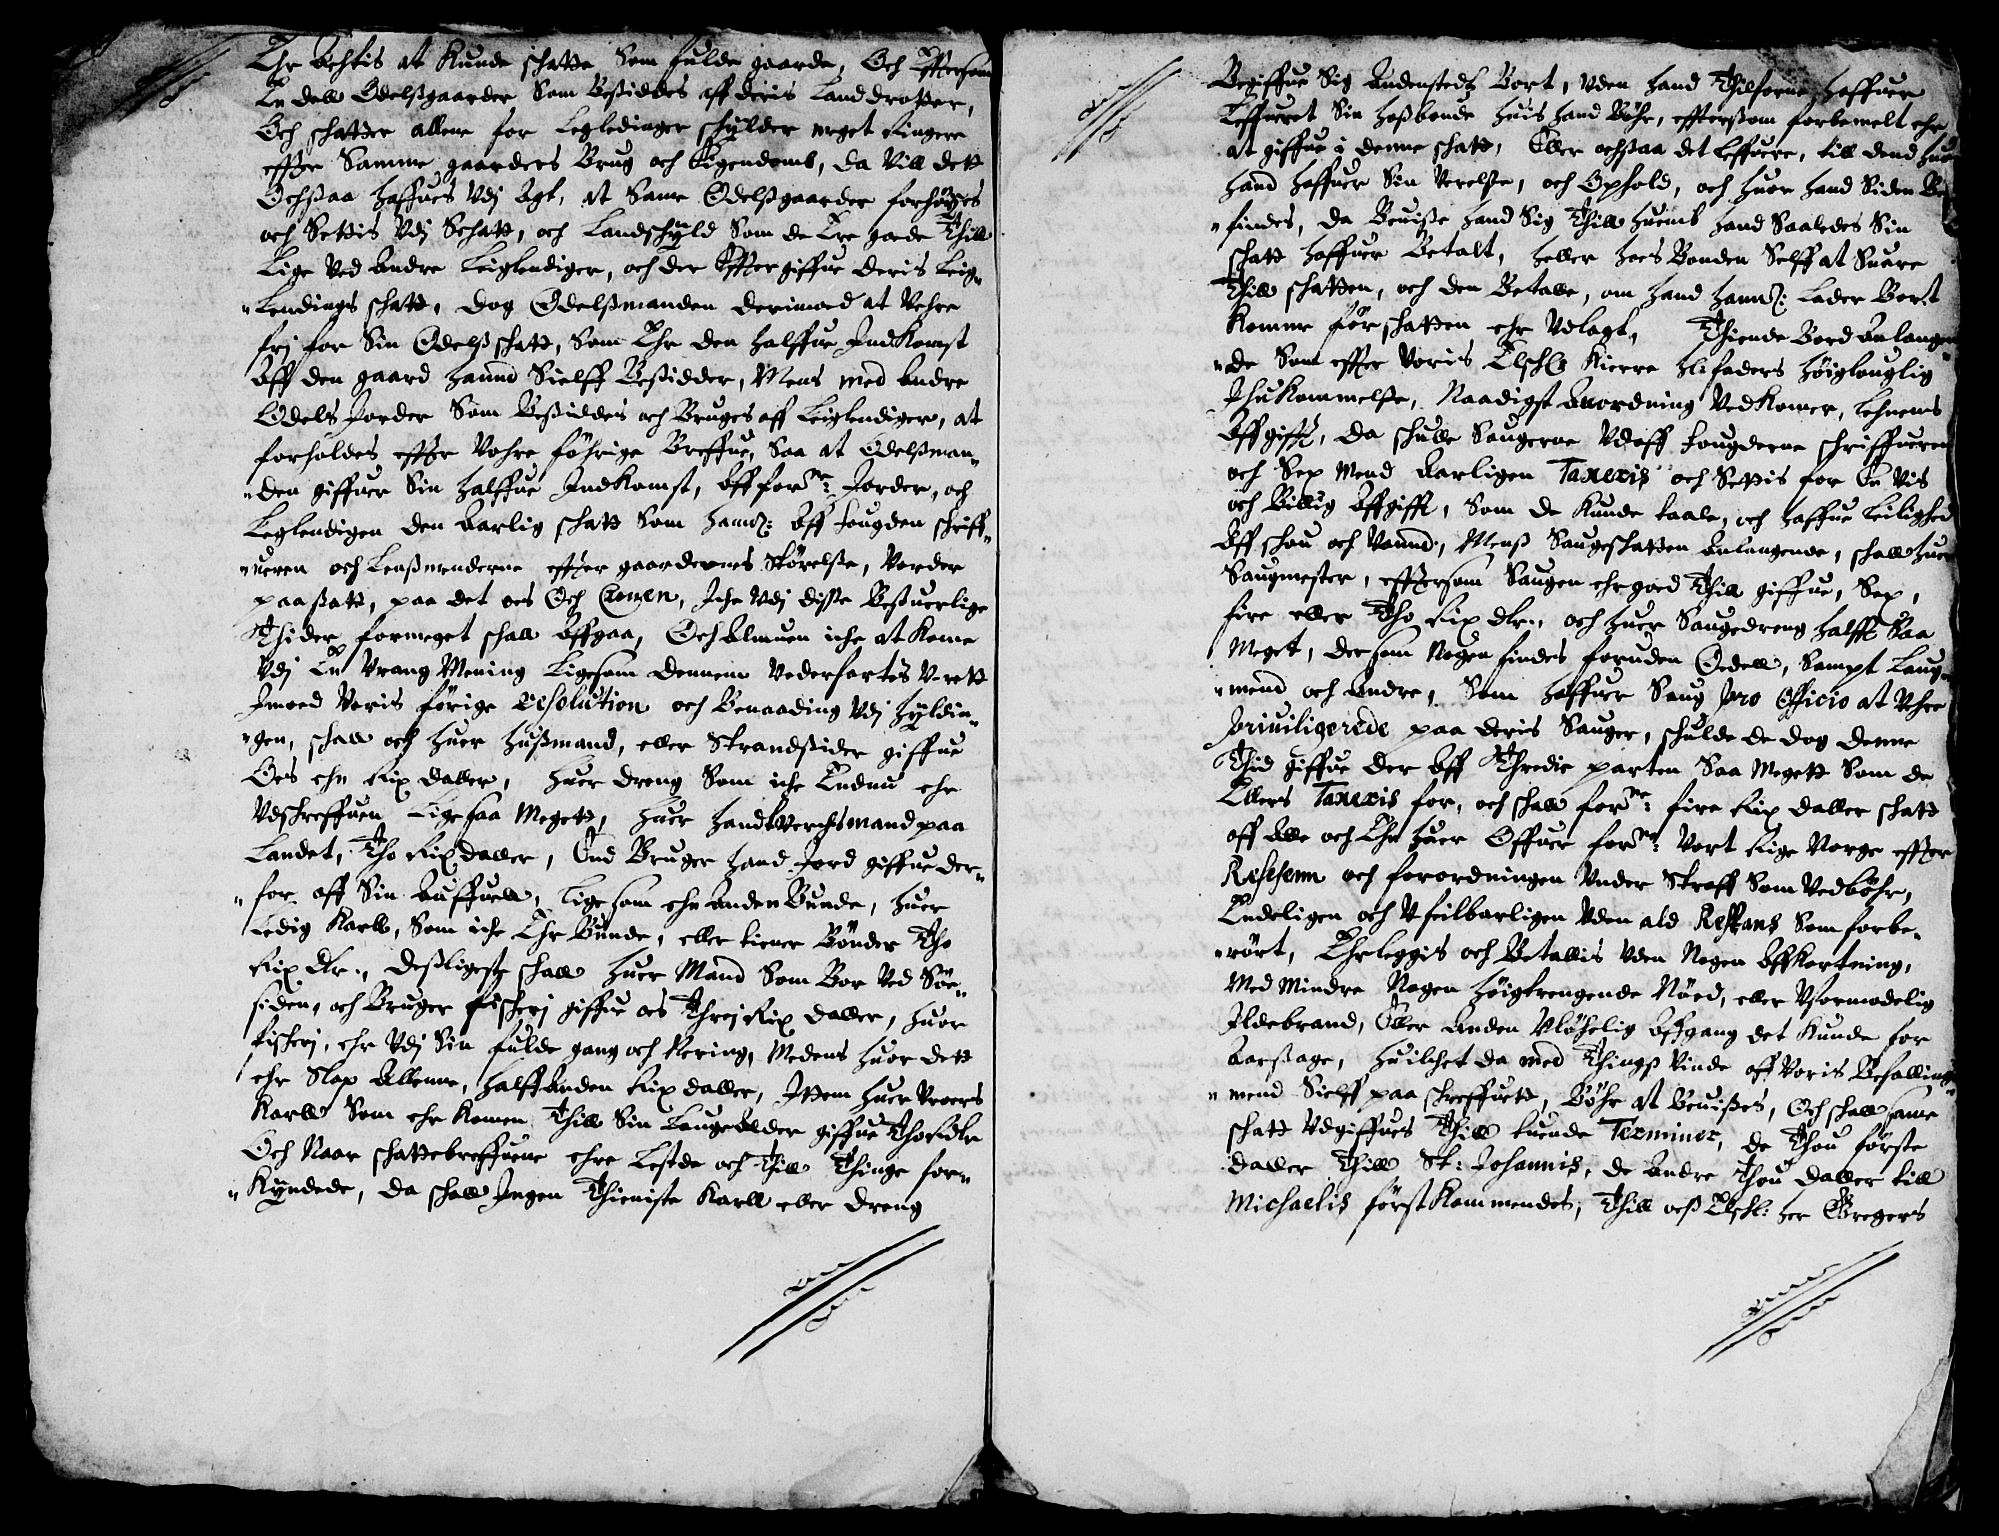 Ehr Achtis at Kunde schatte Som fulde gaarde, Och Efftersom
En dell Odelßgaarder Som Besiddes aff deris Landdrotter,
Och schatter allene for Leglendinger schylder meget Ringere
effter Samme gaarders Brug och Eigendomb, da Vill dett
Ochsaa haffues Vdj Agt, at Same Odelßgaarder forhøyes
och Settis Vdj Schatt, och Landschyld Som de Ere goede Thill
Lige Ved Andre Leiglendiger, och der Effter giffue deris Leig-
"lendings schatt, dog Odelßmanden derimod at Vehre
frj for Sin Odelß schatt, Som Ehr den halffue Indkomst
Aff den gaard hannd Sielff Besidder, Mens med Andre
Odels Jorder Som Besiddes och Bruges aff Leiglendiger, at
forholdes effter Vohre föhrige Breffue, Saa at Odelßman-
"den giffuer Sin halffue Indkomst, Aff forne: Jorder, och
Leglendigen den Aarlig schatt Som hannd: Aff fougden schriff-
"ueren och Lenßmenderne effter gaardernes Störelße, Vorder
paasatt, paa det oes Och Cronen, Iche Vdj diße Besuerlige
Thider formeget schall Affgaa, Och Almuen iche at Kome
Vdj En Vrang Mening Ligesom dennem Vederfartes Vrett
Imoed Voris förige Resolution och Benaading Vdj Hyldin-
"gen, schall och huer hußmand, eller Strandsider giffue
Oes ehn Rix daller, huer dreng Som iche Endnu ehr
Vdschreffuen Lige saa Megett, huer handtverchsmand paa
Landet, Tho Rix daller, End Bruger hand Jord giffue der-
"for aff Sin Auffuell, Lige som ehn Anden Bunde, huer
Ledig Karll, Som iche Ehr Bunde, eller tiener Bönder Tho
Rix dlr., desligeste schall huer Mand Som Bor Ved Söe-
siden, och Bruger fischerj giffue oes Threj Rix daller, huor
fischerj, ehr Vdj Sin fulde gang och Nering, Medens huor dett
ehr Slap Allenne, halffanden Rix daller, Ittem huer
Karll Som ehr Komen Thill Sin Laugealder giffue Tho Rdlr
Och Naar schattebreffuene ehre Leste och Till Thinge for-
"Kyndede, da schall Ingen Thieniste Karll eller dreng
Begiffue Sig Andenstedtz Bort, Vden hand Thilforne haffuer
Leffueret Sin hoßbonde huis hand Böhr, effterßom forbemelt ehr
at giffue i denne schatt, Eller ochsaa det Leffuere, till dend huor
hand haffuer Sin Verelße, och Ophold, och huor hand Siden Be-
"findes, da Beuiße hand Sig Thill huemb hand Saaledes Sin
schatt haffuer Betalt, heller hoes Bonden Selff at Suare
Thill schatten, och den Betalle, om hand hannd: Lader Bort
Komme för schatten ehr Vdlagt, Thiende Bord Anlangen-
"de Som effter Voris Elschl: Kierre Hr. faders höigloulig
Ihukommelße, Naadigst Anordning Vedkomer, Lehnens
Affgifft, da schulle Saugerne Vdaff fougderne schriffueren
och Sex Mend Aarligen Taxeris och Settis for En Vis
och Billig Affgifft, Som de Kunde taale, och haffue Leilighed
Aff schou och Vannd, Menß Saugeschatten Anlangende, schall huer
Saugmester, efftersom Saugen ehr goed Thill giffue, Sex,
fire eller Tho Rix dlr., och huer Saugedreng halfft Saa
Meget, der som Nogen findes foruden Oedell, Sampt Laug-
"mend och Andre, Som haffuer Saug pro Officio at Vehre
priuiligerede paa deris Sauger, schulde de dog denne
Thid giffue der Aff Thredie parten Saa Megett Som de
Ellers Taxeris for, och schall forne: fire Rix daller schatt
off Alle och Ehn huer Offuer forne: Vort Rige Norge effter
Recessen och forordningen Vnder Straff Som Vedböhr,
Endeligen och Vfeilbarligen Vden ald Restans Som forbe-
"rört, Ehrleggis och Betallis Vden Nogen Affkortning,
Med Mindre Nogen höigtrengende Nöed, eller Vformodelig
Ildebrand, Eller Anden Vlöchelig Affgang det Kunde for
Aarsage, huilchet da med Thingß Vinde aff Voris Befallings-
"mend Sielff paa schreffuett, Böhr at Beuißes, Och schall same
schatt Vdgiffues Thill tuende Terminer, de Thou förste
daller Thill St: Johannis, de Andre Thou daller till
Michaelis först Kommendes, Thill oeß Elschl: her Gregers